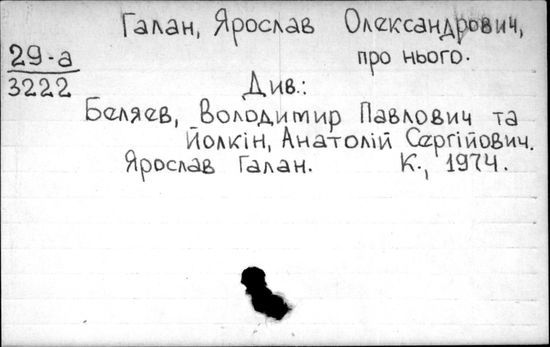 Галан, Ярослав Олександрович,
29-а
про нього.
3222
Див.:
Бєляєв, Володимир Павлович та
Йолкін, Анатолій Сергійович.
Ярослав Галан. К., 1974.